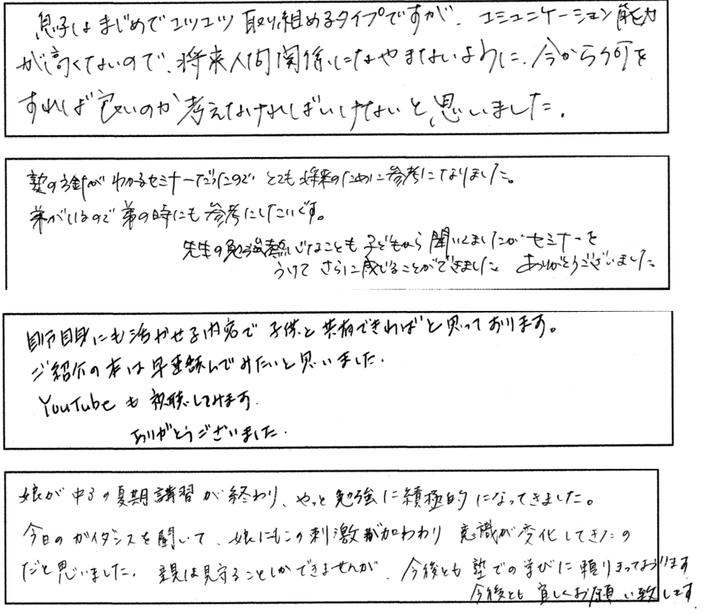 息子はまじめでコツコツ取り組めるタイプですが、コミュニケーション能力
が高くないので、将来人間関係になやまないように、今から何を
すれば良いのか考えなければいけないと思いました。
塾の方針がわかるセミナーだったので とても将来のために参考になりました。
弟がいるので弟の時にも参考にしたいです。
先生の勉強熱心なことも子どもから聞いてましたがセミナーを
うけて さらに感じることができました ありがとうございました
自身にも活かせる内容で 子供と共有できればと思っております。
ご紹介の本は早速読んでみたいと思いました.
YouTubeも視聴してみます.
ありがとうございました.
娘が中3の夏期講習が終わり、やっと勉強に積極的になってきました。
今日のガイダンスを聞いて、娘にもこの刺激が加わり 意識が変化してきたの
だと思いました. 親は見守ることしかできませんが、今後とも塾での学びに頼りきっております
今後とも宜しくお願い致します.